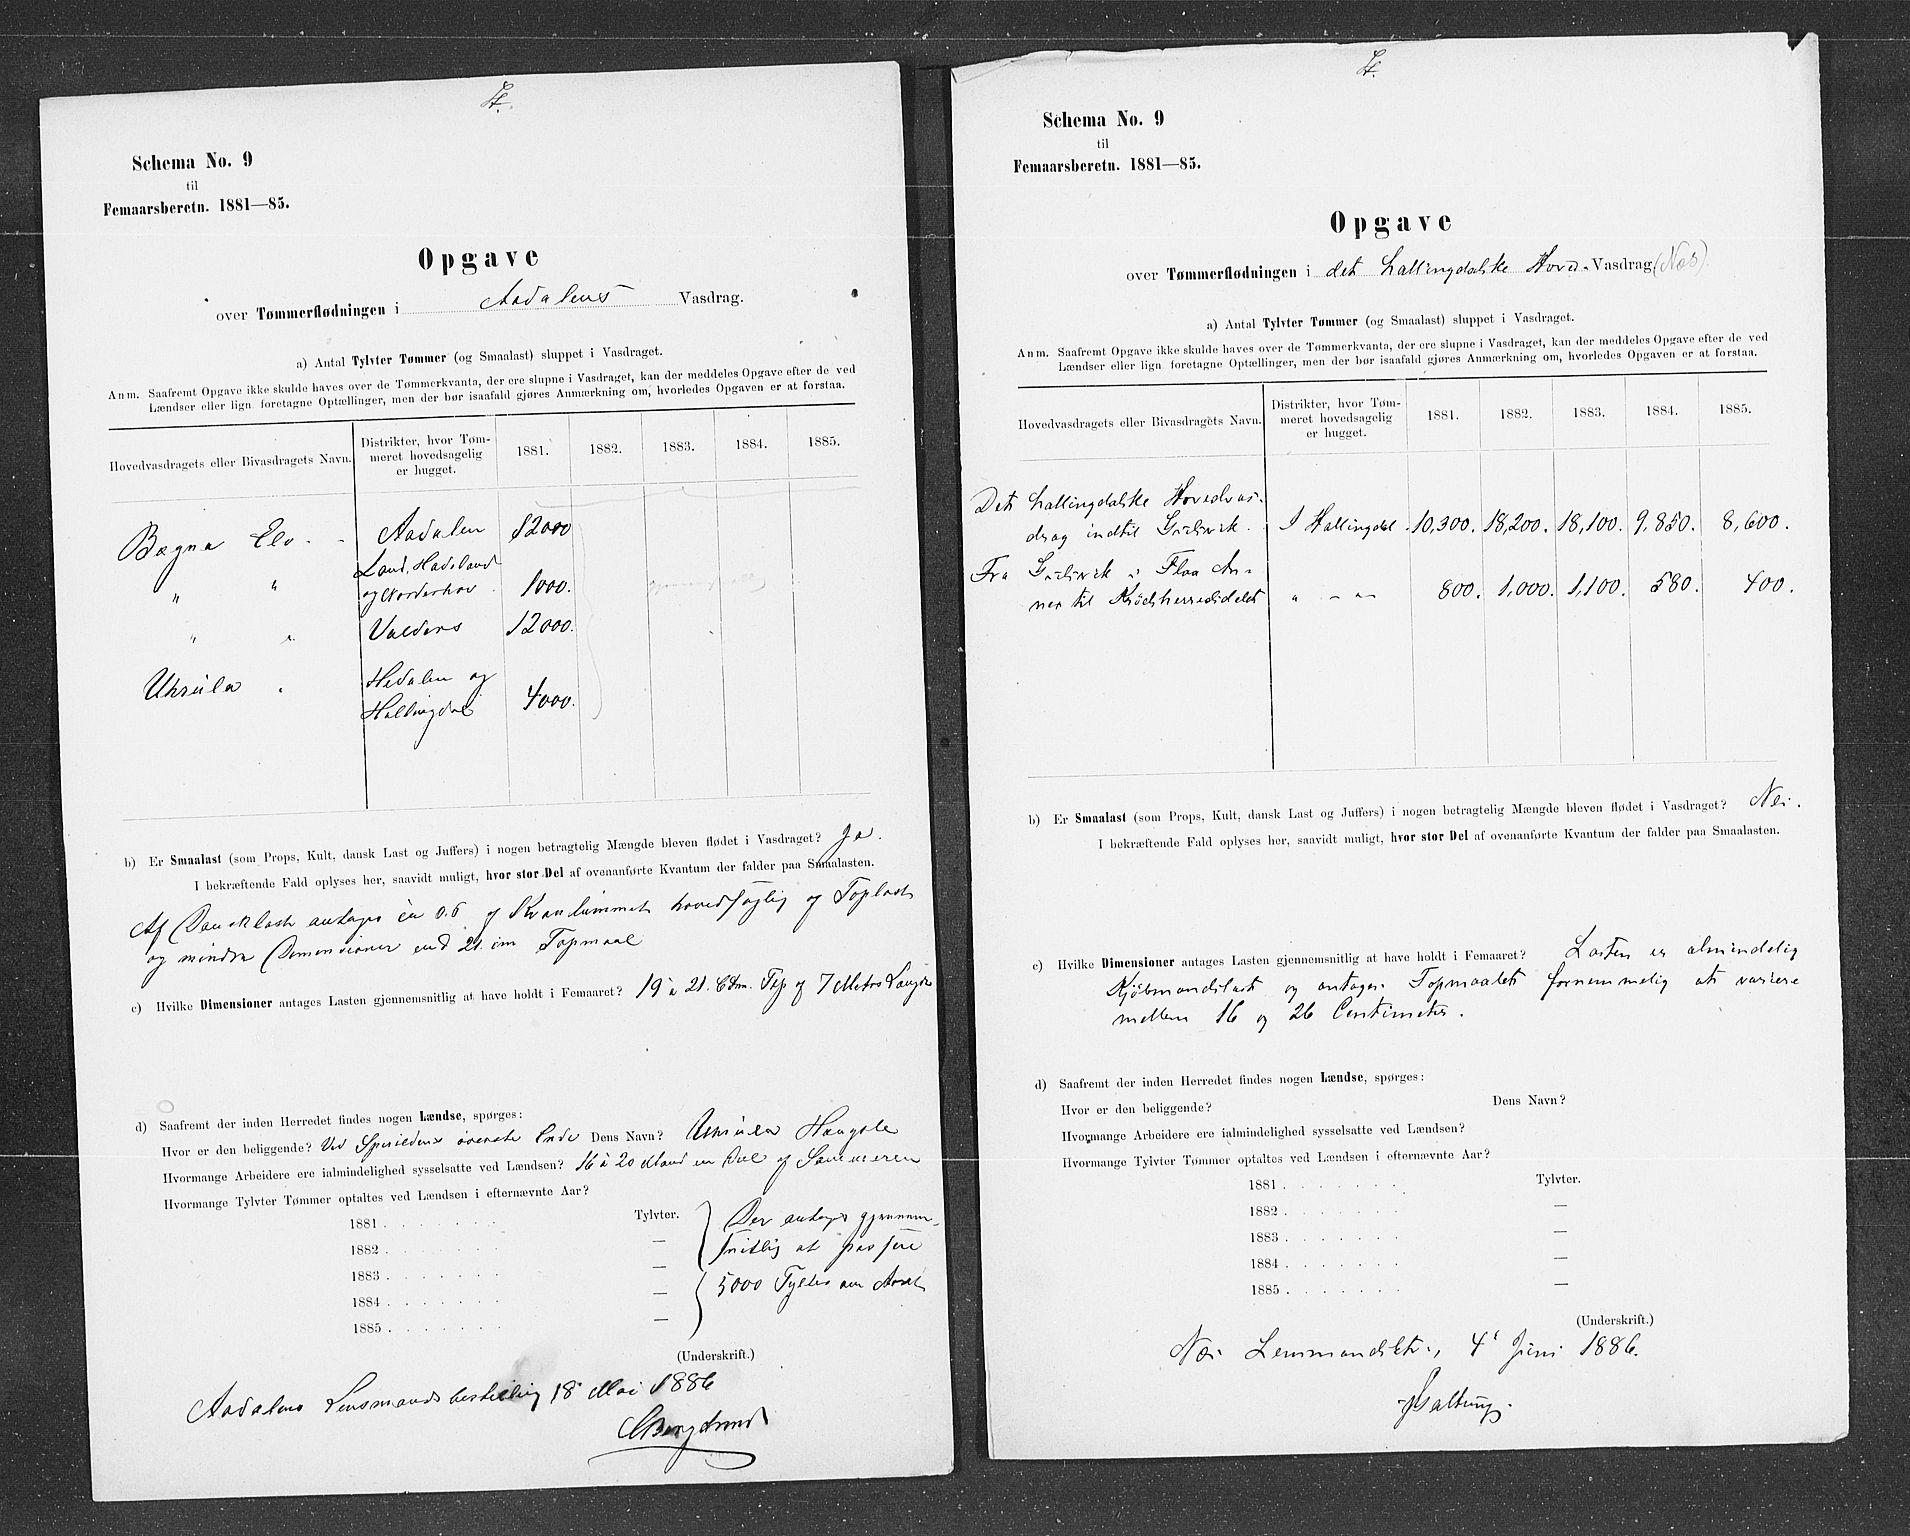 Schema No. 9
til
Femaarsberetn. 1881—85.
Opgave
over Tømmerflødningen i Aadalens Vasdrag.
a) Antal Tylvter Tømmer (og Smaalast) sluppet i Vasdraget.
Anm. Saafremt Opgave ikke skulde haves over de Tømmerkvanta, der ere slupne i Vasdraget, kan der meddeles Opgave efter de ved
Lændser eller lign foretagne Optællinger, men der bør isaafald gjøres Anmærkning om, hvorledes Opgaven er at forstaa.
Hovedvasdragets eller Bivasdragets Navn. Distrikter, hvor Tømmeret hovedsagelig er hugget. 1881. 1882. 1883. 1884. 1885.
Bægna Elv Aadalen 12000
" " Land, Hadeland
og Norderhov 1000.
" " Valders 12000.
Urula Hedalen og
Hallingdal 4000.
b) Er Smaalast (som Props, Kult, dansk Last og Juffers) i nogen betragtelig Mængde bleven flødet i Vasdraget? Ja.
I bekræftende Fald oplyses her, saavidt muligt, hvor stor Del af ovenanførte Kvantum der falder paa Smaalasten.
Af Dansklast antages 0.5 af Kvantummet hovedsaglig og Toplast
og mindre Dimensioner end 21 cm Topmaal
c) Hvilke Dimensioner antages Lasten gjennemsnitlig at have holdt i Femaaret? 19 à 21. Ctm. Top og 7 Metres Længde
d) Saafremt der inden Herredet findes nogen Lændse, spørges:
Hvor er den beliggende? Ved Sperillens øverste Ende Dens Navn? Urula Hangsle
Hvormange Arbeidere ere ialmindelighed sysselsatte ved Lændsen? 16 à 20 Mand en Del af Sommeren
Hvormange Tylvter Tømmer optaltes ved Lændsen i efternævnte Aar?
1881 . . . . . . . Tylvter. Der antages gjennem-
1882 . . . . . . . — snitlig at passere
1883 . . . . . . . — 5000 Tylter om Aaret
1884 . . . . . . . —
1885 . . . . . . . —
(Underskrift.)
Aadalens Lensmandsbestilling 18 Mai 1886
Schema No. 9
til
Femaarsberetn. 1881—85.
Opgave
over Tømmerflødningen i det hallingdalske Hoved-Vasdrag (Nes).
a) Antal Tylvter Tømmer (og Smaalast) sluppet i Vasdraget.
Anm. Saafremt Opgave ikke skulde haves over de Tømmerkvanta, der ere slupne i Vasdraget, kan der meddeles Opgave efter de ved
Lændser eller lign foretagne Optællinger, men der bør isaafald gjøres Anmærkning om, hvorledes Opgaven er at forstaa.
Hovedvasdragets eller Bivasdragets Navn. Distrikter, hvor Tømmeret hovedsagelig er hugget. 1881. 1882. 1883. 1884. 1885.
Det hallingdalske Hovedvas-
drag indtil Gulsvik. I Hallingdal. 10,300. 18,200. 18,100. 9,850. 8,600.
Fra Gulsvik i Flaa An-
nex til Krødsherreddelet " — " — 800. 1,000. 1,100. 580. 400.
b) Er Smaalast (som Props, Kult, dansk Last og Juffers) i nogen betragtelig Mængde bleven flødet i Vasdraget? Nei.
I bekræftende Fald oplyses her, saavidt muligt, hvor stor Del af ovenanførte Kvantum der falder paa Smaalasten.
c) Hvilke Dimensioner antages Lasten gjennemsnitlig at have holdt i Femaaret? Lasten er almindelig
Kjøbmandslast og antages Topmaalet fornemmelig at variere
mellem 16 og 26 Centimeter.
d) Saafremt der inden Herredet findes nogen Lændse, spørges:
Hvor er den beliggende? Dens Navn?
Hvormange Arbeidere ere ialmindelighed sysselsatte ved Lændsen?
Hvormange Tylvter Tømmer optaltes ved Lændsen i efternævnte Aar?
1881 . . . . . . . Tylvter.
1882 . . . . . . . —
1883 . . . . . . . —
1884 . . . . . . . —
1885 . . . . . . . —
(Underskrift.)
Nes Lensmandsktr., 4 Juni 1886.